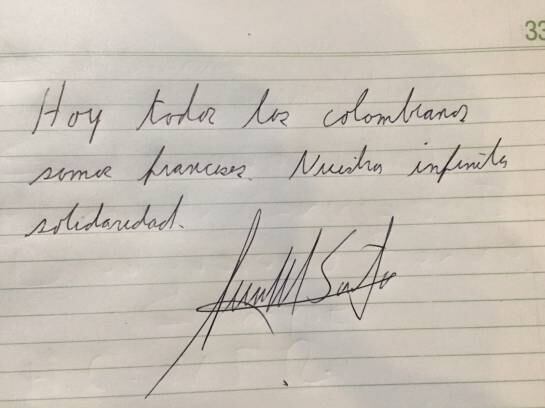 33
Hoy todos los colombianos
somos franceses. Nuestra infinita
solidaridad.
Santos